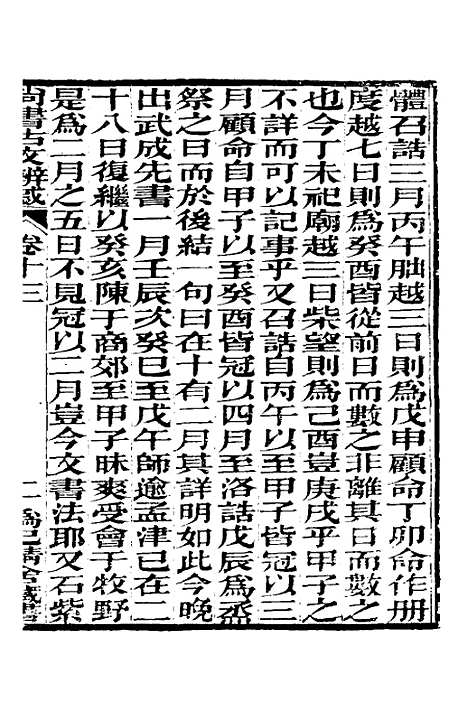 體召誥三月丙午朏越三日則爲戊申顧命丁卯命作册
度越七日則爲癸酉皆從前日而數之非離其日而數之
也今丁未祀廟越三日柴望則爲己酉豈庚戌乎甲子之
不詳而可以記事乎又召誥自丙午以至甲子皆冠以三
月顧命自甲子以至癸酉皆冠以四月至洛誥戊辰爲烝
祭之日而於後結一句曰在十有二月其詳明如此今晚
出武成先書一月壬辰次癸巳至戊午師逾孟津已在二
十八日復繼以癸亥陳于商郊至甲子昧爽受會于牧野
是爲二月之五日不見冠以二月豈今文書法耶又石紫
尚書古文辨惑 卷十三 二 爲己精舍藏書